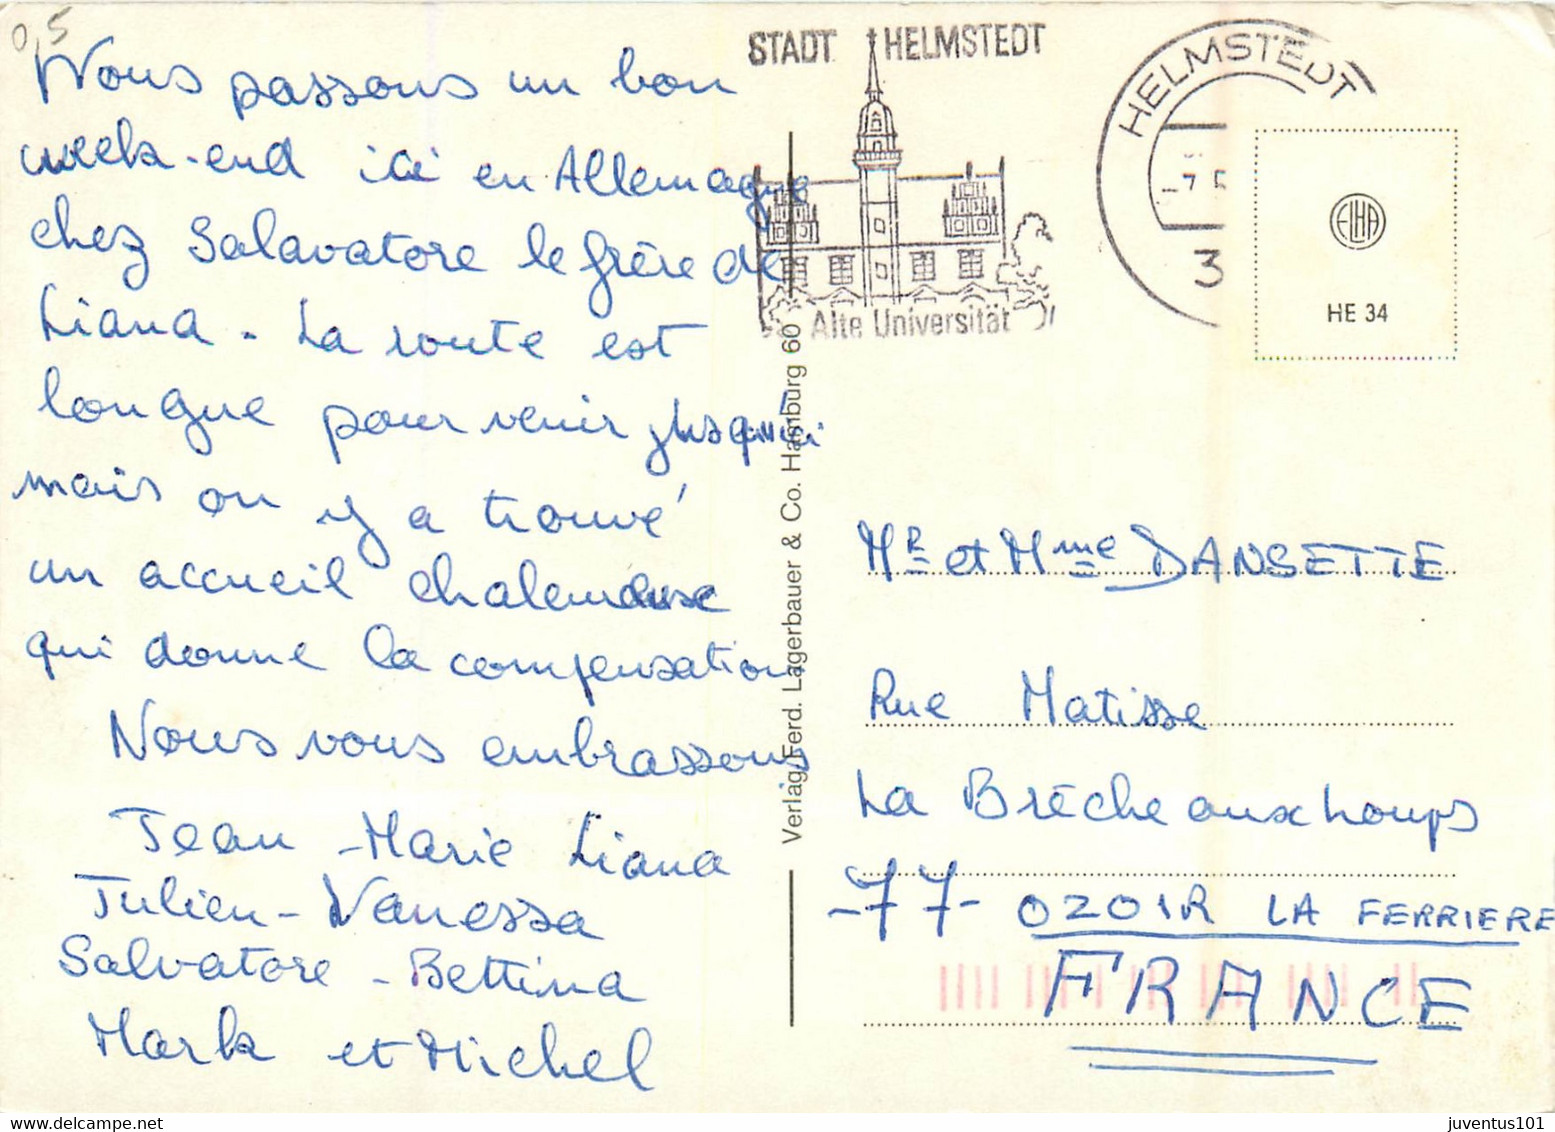 0,5
Nous passons un bon
week-end ici en Allemagne
chez Salavatore le frère de
Liana. La route est
longue pour venir jusqu'ici
mais on y a trouvé
un accueil
qui donne la compensation
Nous vous embrassons
Jean-Marie Liana
Julien-Vanessa
Salvatore-Bettina
Mark et Michel
Verlag Ferd. Lagerbauer & Co. Hamburg 60
STADT HELMSTEDT
Alte Universität
HELMSTEDT
-7.5
3
ELHA
HE 34
Mr et Mme DANSETTE
Rue Matisse
La Brèche aux Loups
-77- OZOIR LA FERRIERE
FRANCE
juventus101